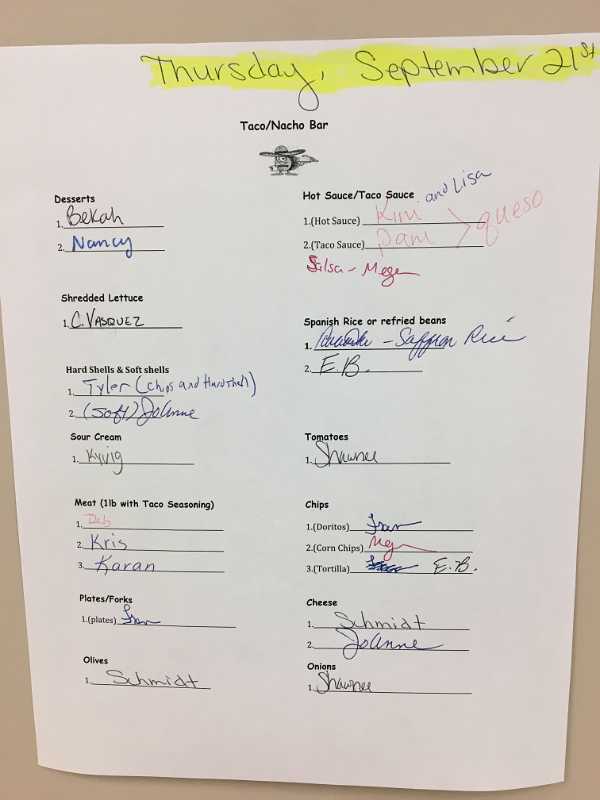 Thursday, September 21st
Taco/Nacho Bar
Desserts
1. Bekah
2. Nancy
Shredded Lettuce
1. C. VASQUEZ
Hard Shells & Soft shells
1. Tyler (chips and Hardshell)
2. (soft) JoAnne
Sour Cream
1. Kyvig
Meat (1lb with Taco Seasoning)
1. Deb
2. Kris
3. Karan
Plates/Forks
1.(plates) Fran
Olives
1. Schmidt
Hot Sauce/Taco Sauce
1.(Hot Sauce) Kim and Lisa
2.(Taco Sauce) Pam
queso
Salsa - Megan
Spanish Rice or refried beans
1. - Saffron Rice
2. E.B.
Tomatoes
1. Shawnee
Chips
1.(Doritos) Fran
2.(Corn Chips) Meg
3.(Tortilla) E.B.
Cheese
1. Schmidt
2. JoAnne
Onions
1. Shawnee